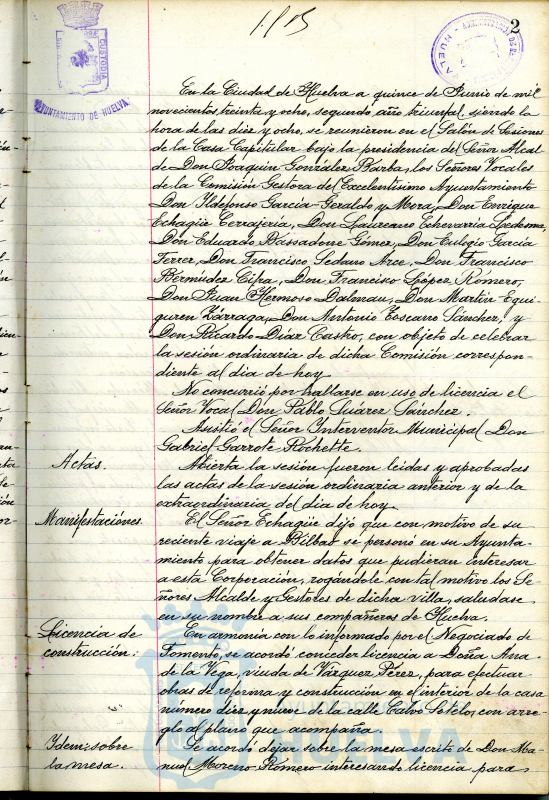 1.915
2
CUSTODIA
AYUNTAMIENTO DE HUELVA
HUELVA
En la Ciudad de Huelva a quince de Junio de mil
novecientos treinta y ocho, segundo año triunfal, siendo la
hora de las diez y ocho, se reunieron en el Salón de Sesiones
de la Casa Capitular bajo la presidencia del Señor Alcal
de Don Joaquin González Barba, los Señores Vocales
de la Comisión Gestora del Excelentísimo Ayuntamiento
Don Ildefonso Garcia-Geraldo y Mora, Don Enrique
Echagüe Cerrajería, Don Laureano Echevarria Ledesma,
Don Eduardo Bassadone Gómez, Don Eulogio García
Ferrer, Don Francisco Sedano Arce, Don Francisco
Bermúdez Cifra, Don Francisco López Romero,
Don Juan Hermoso Dalmau, Don Martín Equi-
guren Zárraga, Don Antonio Toscano Sánchez, y
Don Ricardo Díaz Castro, con objeto de celebrar
la sesión ordinaria de dicha Comisión correspon-
diente al dia de hoy.
No concurrió por hallarse en uso de licencia el
Señor Vocal Don Pablo Suárez Sánchez.
Asistió el Señor Interventor Municipal Don
Gabriel Garrote Rochette.
Actas. Abierta la sesión fueron leidas y aprobadas
las actas de la sesión ordinaria anterior y de la
extraordinaria del dia de hoy.
Manifestaciones. El Señor Echagüe dijo que con motivo de su
reciente viaje a Bilbao se personó en su Ayunta-
miento para obtener datos que pudieran interesar
a esta Corporación, rogándole con tal motivo los Se-
ñores Alcalde y Gestores de dicha villa, saludase
en su nombre a sus compañeros de Huelva.
Licencia de En armonia con lo informado por el Negociado de
construcción: Fomento, se acordó conceder licencia a Doña Ana
de la Vega, viuda de Vázquez Pérez, para efectuar
obras de reforma y construcción en el interior de la casa
número diez y nueve de la calle Calvo Sotelo, con arre-
glo al plano que acompaña.
Idem: sobre Se acordó dejar sobre la mesa escrito de Don Ma-
la mesa. nuel Moreno Romero interesando licencia para
HUELVA